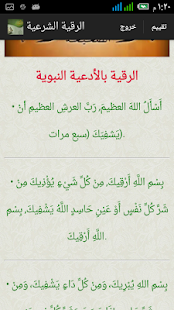 ١:٢٠ م
الرقية الشرعية
خروج
تقييم
الرقية بالأدعية النبوية
• أَسْأَلُ اللهَ العظيمَ، رَبَّ العرشِ العظيمِ أنْ
يَشْفِيَكَ (سبع مرات).
• بِسْمِ اللَّهِ أَرْقِيكَ، مِنْ كُلِّ شَيْءٍ يُؤْذِيكَ مِنْ
شَرِّ كُلِّ نَفْسٍ أَوْ عَيْنِ حَاسِدٍ اللَّهُ يَشْفِيكَ،
بِسْمِ اللَّهِ أَرْقِيكَ.
• بِاسْمِ اللهِ يُبْرِيكَ، وَمِنْ كُلِّ دَاءٍ يَشْفِيكَ، وَمِنْ